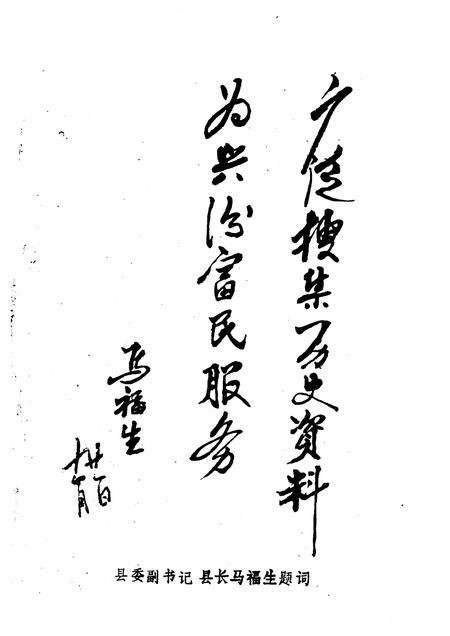 广泛搜集历史资料
为兴汾富民服务
马福生
县委副书记 县长马福生题词